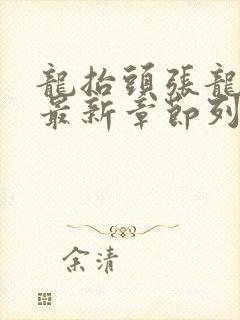 龍抬頭張龍
最新章節列
余清